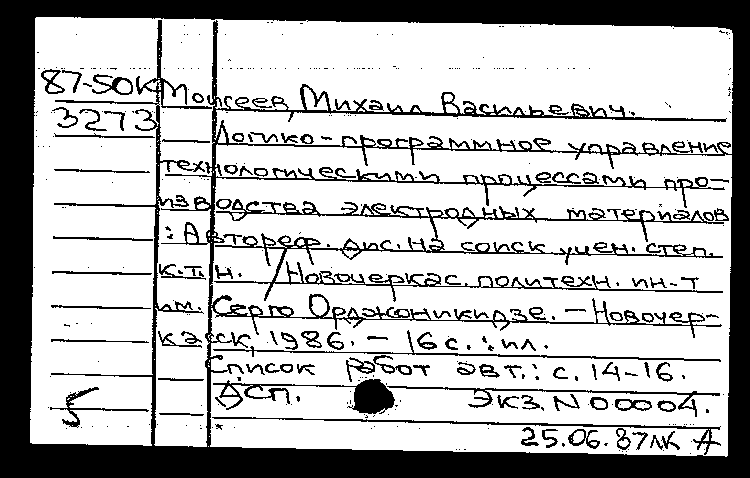 87-50К Моисеев, Михаил Васильевич.
3273
Логико-программное управление
технологическими процессами про-
изводства электродных материалов
: Автореф. дис. на соиск учен. степ.
к.т.н. / Новочеркас. политехн. ин-т
им. Серго Орджоникидзе. — Новочер-
касск, 1986. — 16 с. : ил.
Список работ авт.: с. 14-16.
ДСП. Экз. N 00004.
5
25.06.87 лк А